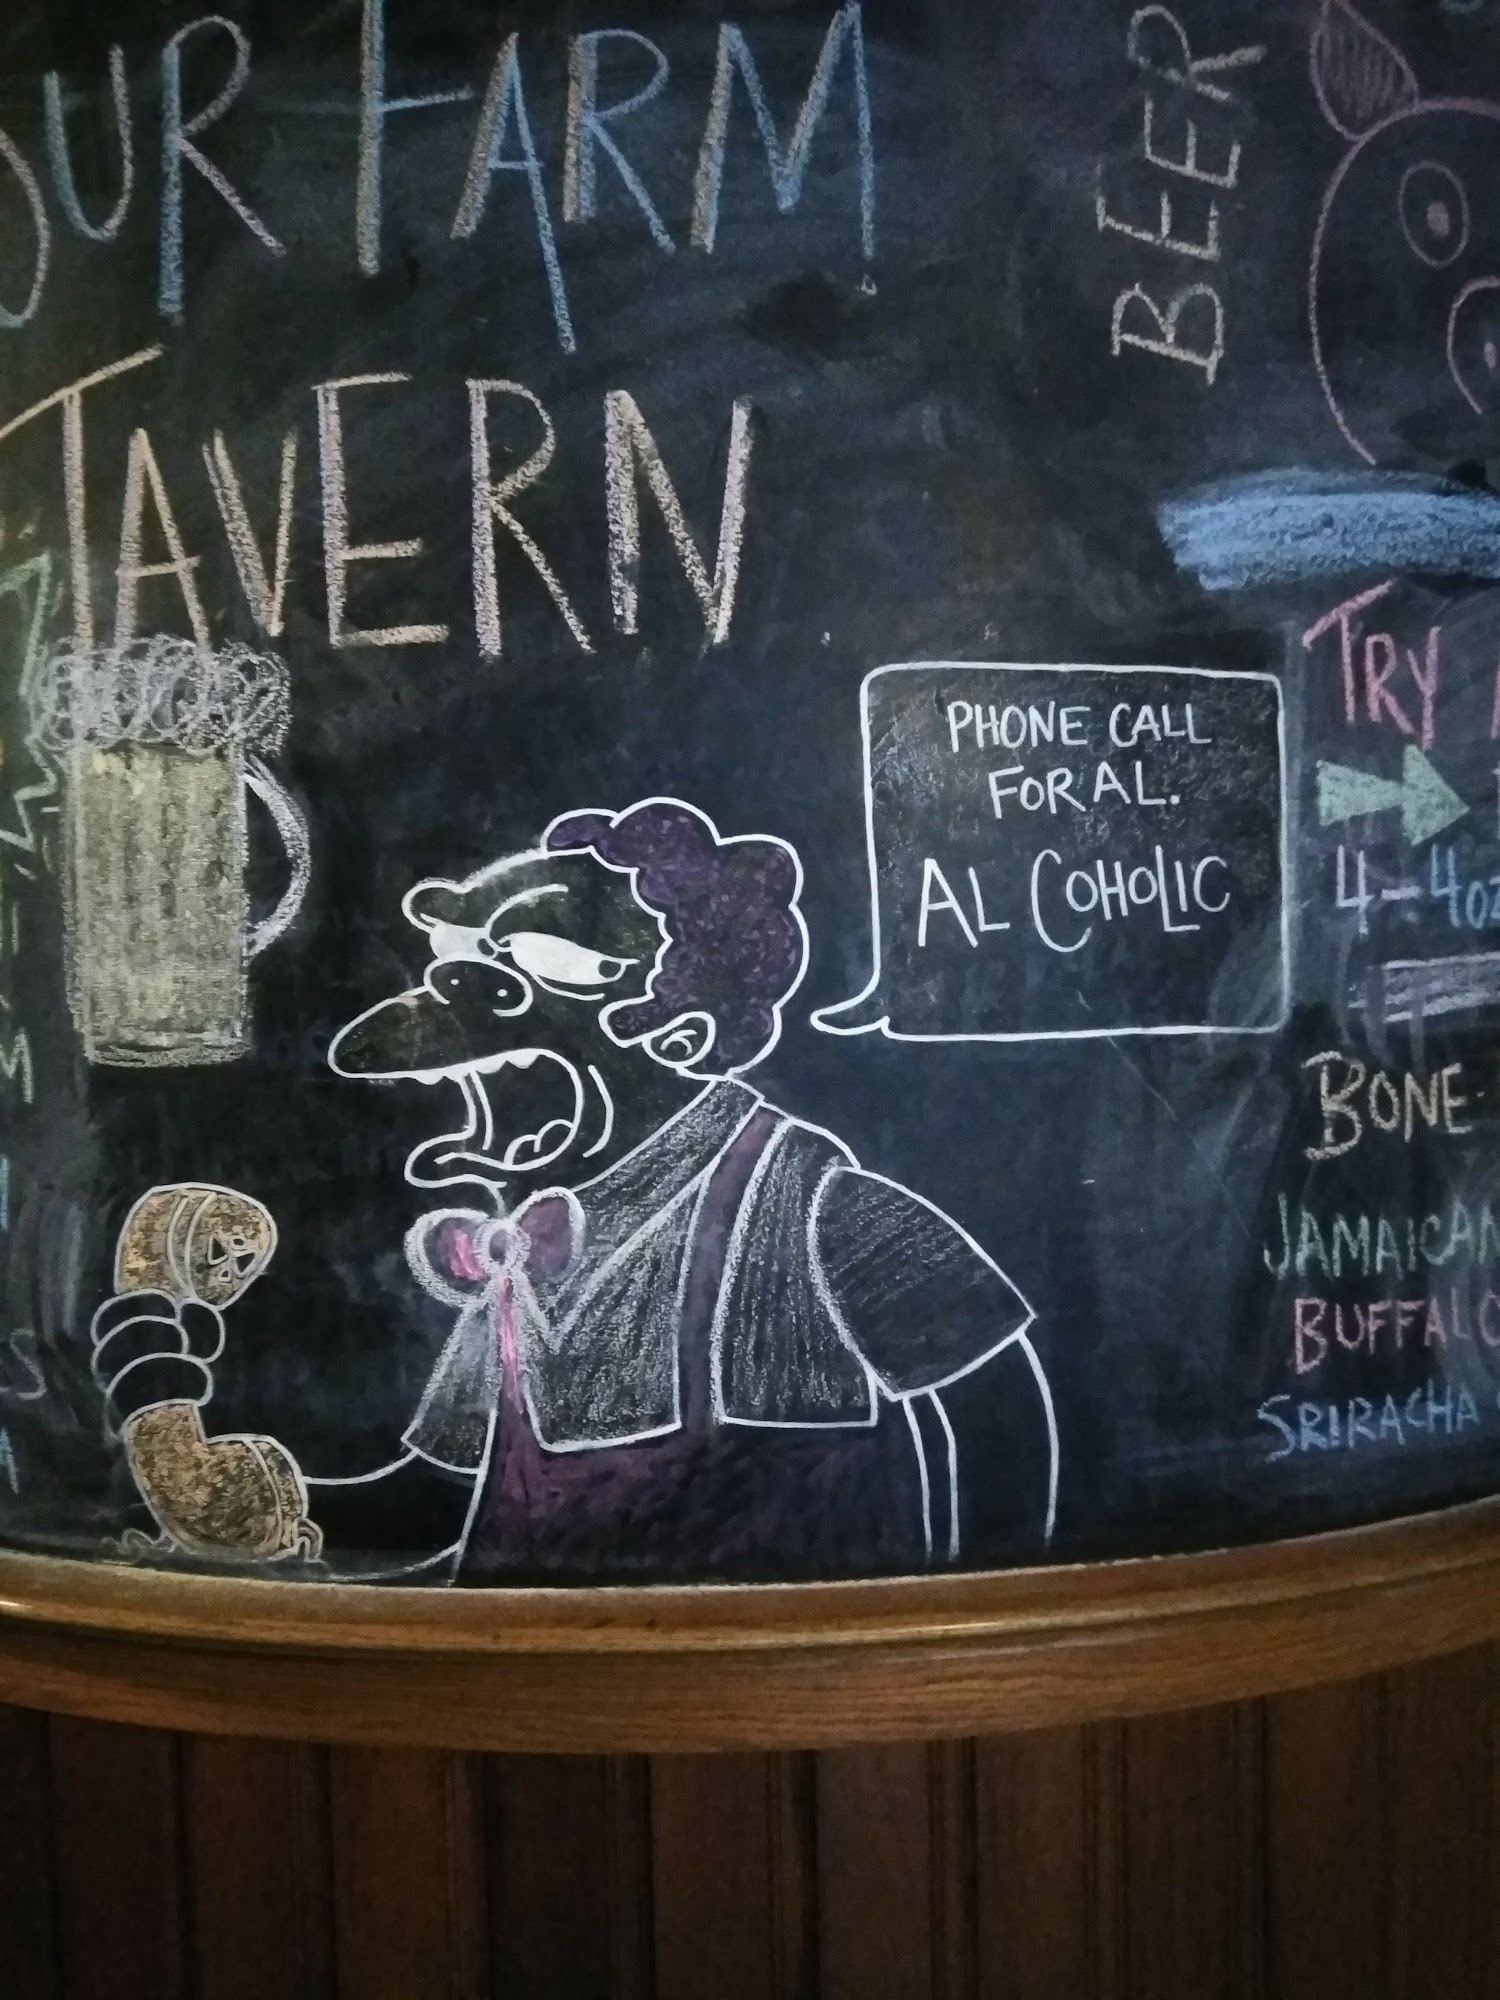 OUR FARM
TAVERN
BEER
PHONE CALL
FOR AL.
AL COHOLIC
TRY
4-4oz
BONE-
JAMAICAN
BUFFALO
SRIRACHA